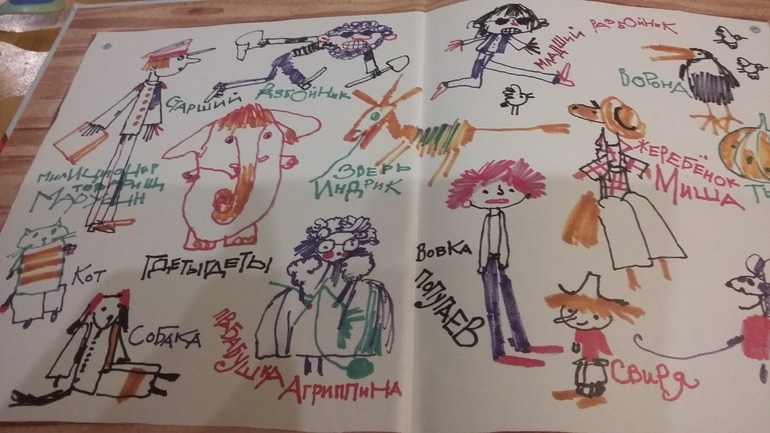 СТАРШИЙ РАЗБОЙНИК
МЛАДШИЙ РАЗБОЙНИК
ВОРОНА
МИЛИЦИОНЕР
ТОВАРИЩ
ЗВЕРЬ
ИНДРИК
ЖЕРЕБЁНОК
МИША
КОТ
ГДЕТЫГДЕТЫ
ВОВКА
ПОПУГАЕВ
СОБАКА
ПРАБАБУШКА
АГРИППИНА
СВИРЯ